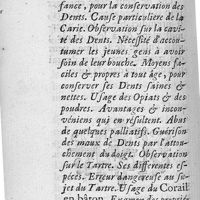 fance, pour la conservation des
Dents. Cause particuliere de la
Carie. Observation sur la cavi-
té des Dents. Nécessité d'accou-
tumer les jeunes gens à avoir
soin de leur bouche. Moyens faci-
les & propres à tout âge, pour
conserver ses Dents saines &
nettes. Usage des Opiats & des
poudres. Avantages & inconvé-
niens qui en résultent. Abus
de quelques palliatifs. Guérison
des maux de Dents par l'attou-
chement du doigt. Observation
sur le Tartre. Ses differentes es-
péces. Erreur dangereuse au su-
jet du Tartre. Usage du Corail
en bâton. Examen des propriétés